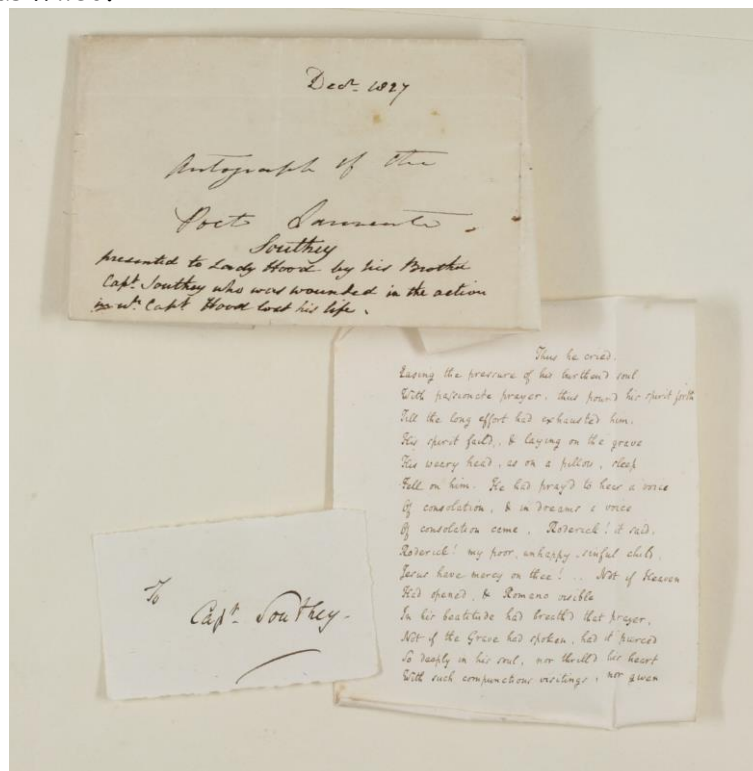 Decr. 1827
Autograph of the
Poet Laureate.
Southey
presented to Lady Hood by his Brother
Capt. Southey who was wounded in the action
in wh. Capt Hood lost his life.
Thus he cried,
Easing the pressure of his burthend soul
With passionate prayer. thus pourd his spirit forth
Till the long effort had exhausted him.
His spirit faild, & laying on the grave
His weary head, as on a pillow, sleep
Fell on him. He had prayd to hear a voice
Of consolation, & in dreams a voice
Of consolation came. Roderick! it said,
Roderick! my poor, unhappy, sinful child,
Jesus have mercy on thee! .. Not if Heaven
Had opened, & Romano visible
In his beatitude had breathd that prayer,
Not if the Grave had spoken, had it pierced
So deeply in his soul, nor thrilld his heart
With such compunctious visitings, nor given
To
Capt. Southey.